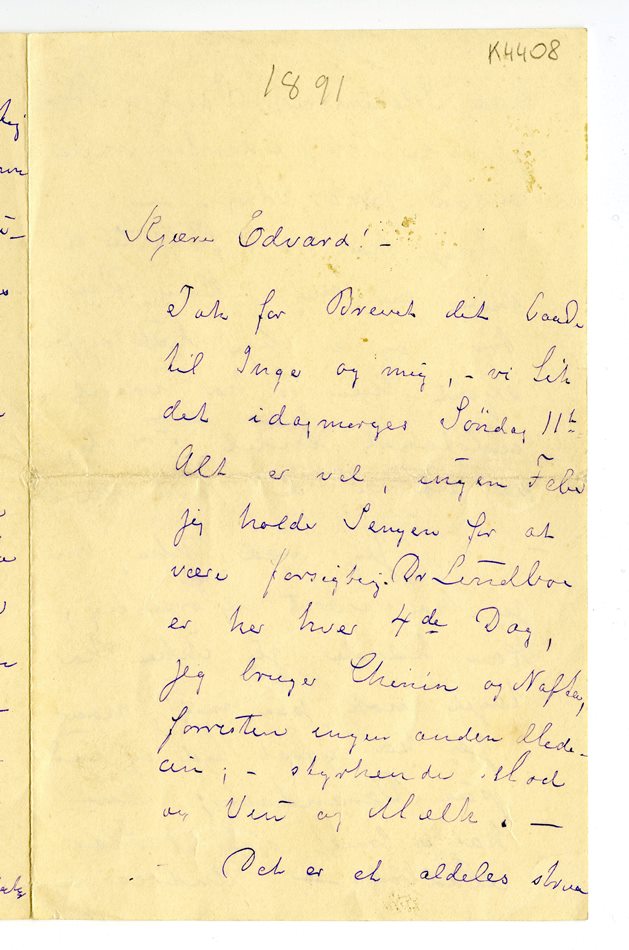 K4408
1891
Kjære Edvard! –
Tak for Brevet dit baade
til Inger og mig, – vi fik
det idagmorges Söndag 11te
Alt er vel, ingen Feber
jeg holde Sengen for at
være forsigtig. Dr
er her hver 4de Dag,
jeg bruger Chinin og Nafta,
forresten ingen anden Mede-
cin; – styrkende Mad
og Vin og Mælk. –
Det er et aldeles